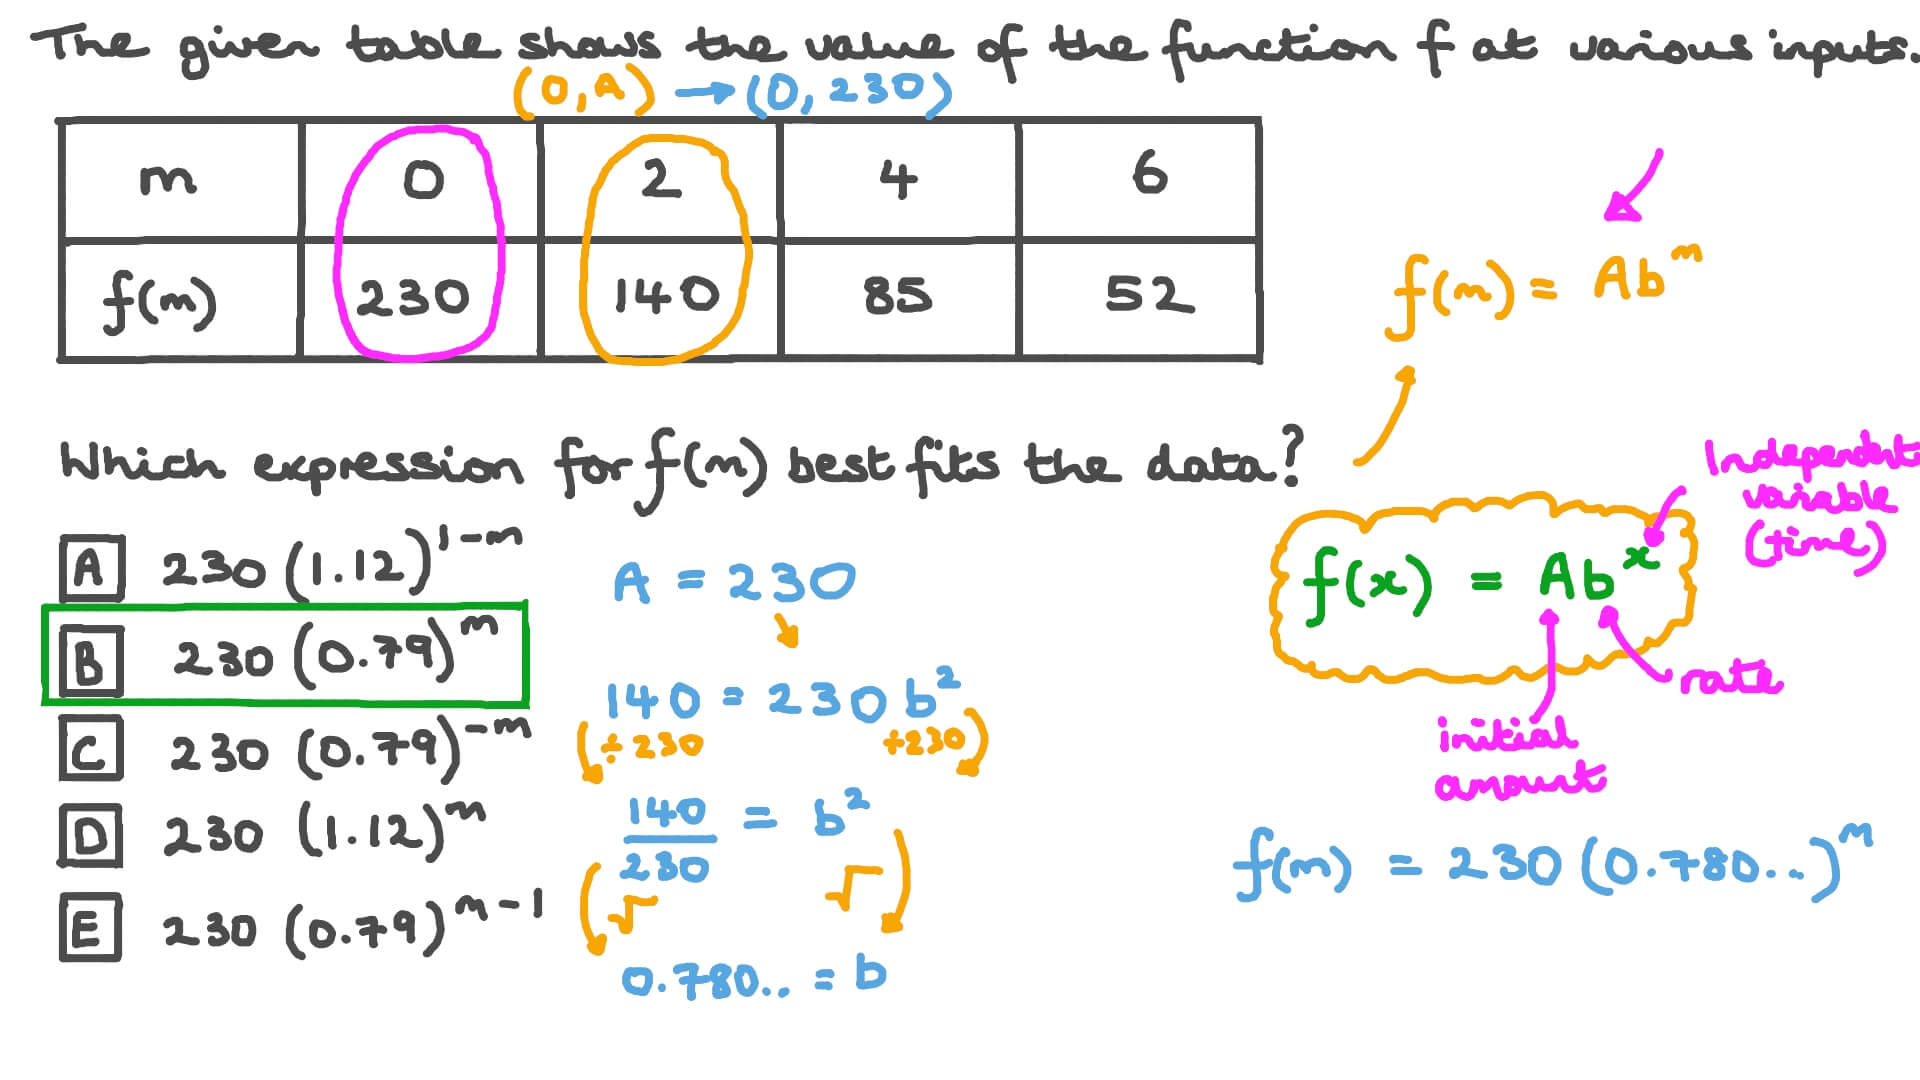 The given table shows the value of the function f at various inputs.
(0, A) → (0, 230)
m 0 2 4 6
f(m) 230 140 85 52
f(m) = Ab^m
Which expression for f(m) best fits the data?
A 230 (1.12)^1-m
B 230 (0.79)^m
C 230 (0.79)^-m
D 230 (1.12)^m
E 230 (0.79)^m-1
A = 230
140 = 230 b^2
÷ 230 ÷230
140/230 = b^2
√ √
0.780.. = b
Independent
variable
(time)
f(x) = Ab^x
rate
initial
amount
f(m) = 230 (0.780..)^m